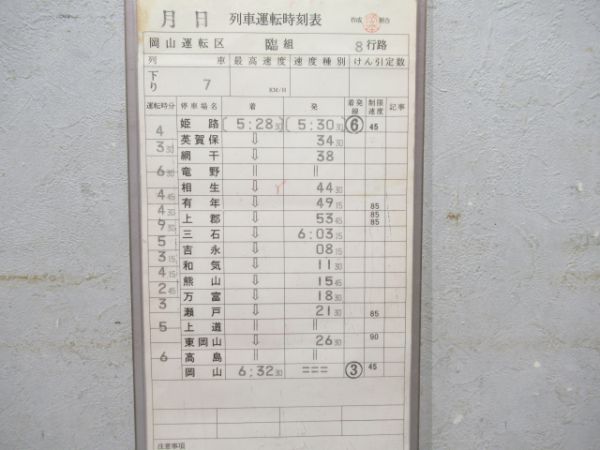 月 日 列車運転時刻表 作成
岡山運転区 臨組 8行路
列 車 最高速度 速度種別 けん引定数
下り 7 KM/H
運転時分 停車場名 着 発 着発線 制限速度 記事
姫路 (5:28 30) (5:30 30) ⑥ 45
4
英賀保 ⇓ 34 30
3 30
網干 ⇓ 38
竜野 || ||
6 30
相生 ⇓ 44 30
4 45
有年 ⇓ 49 15 85
4 30
上郡 ⇓ 53 45 85
9 30 85
三石 ⇓ 6:03 15
5
吉永 ⇓ 08 15
3 15
和気 ⇓ 11 30
4 15
熊山 ⇓ 15 45
2 45
万富 ⇓ 18 30
3
瀬戸 ⇓ 21 30 85
上道 || ||
5
東岡山 ⇓ 26 30 90
高島 || ||
6
岡山 6:32 30 === ③ 45
注意事項